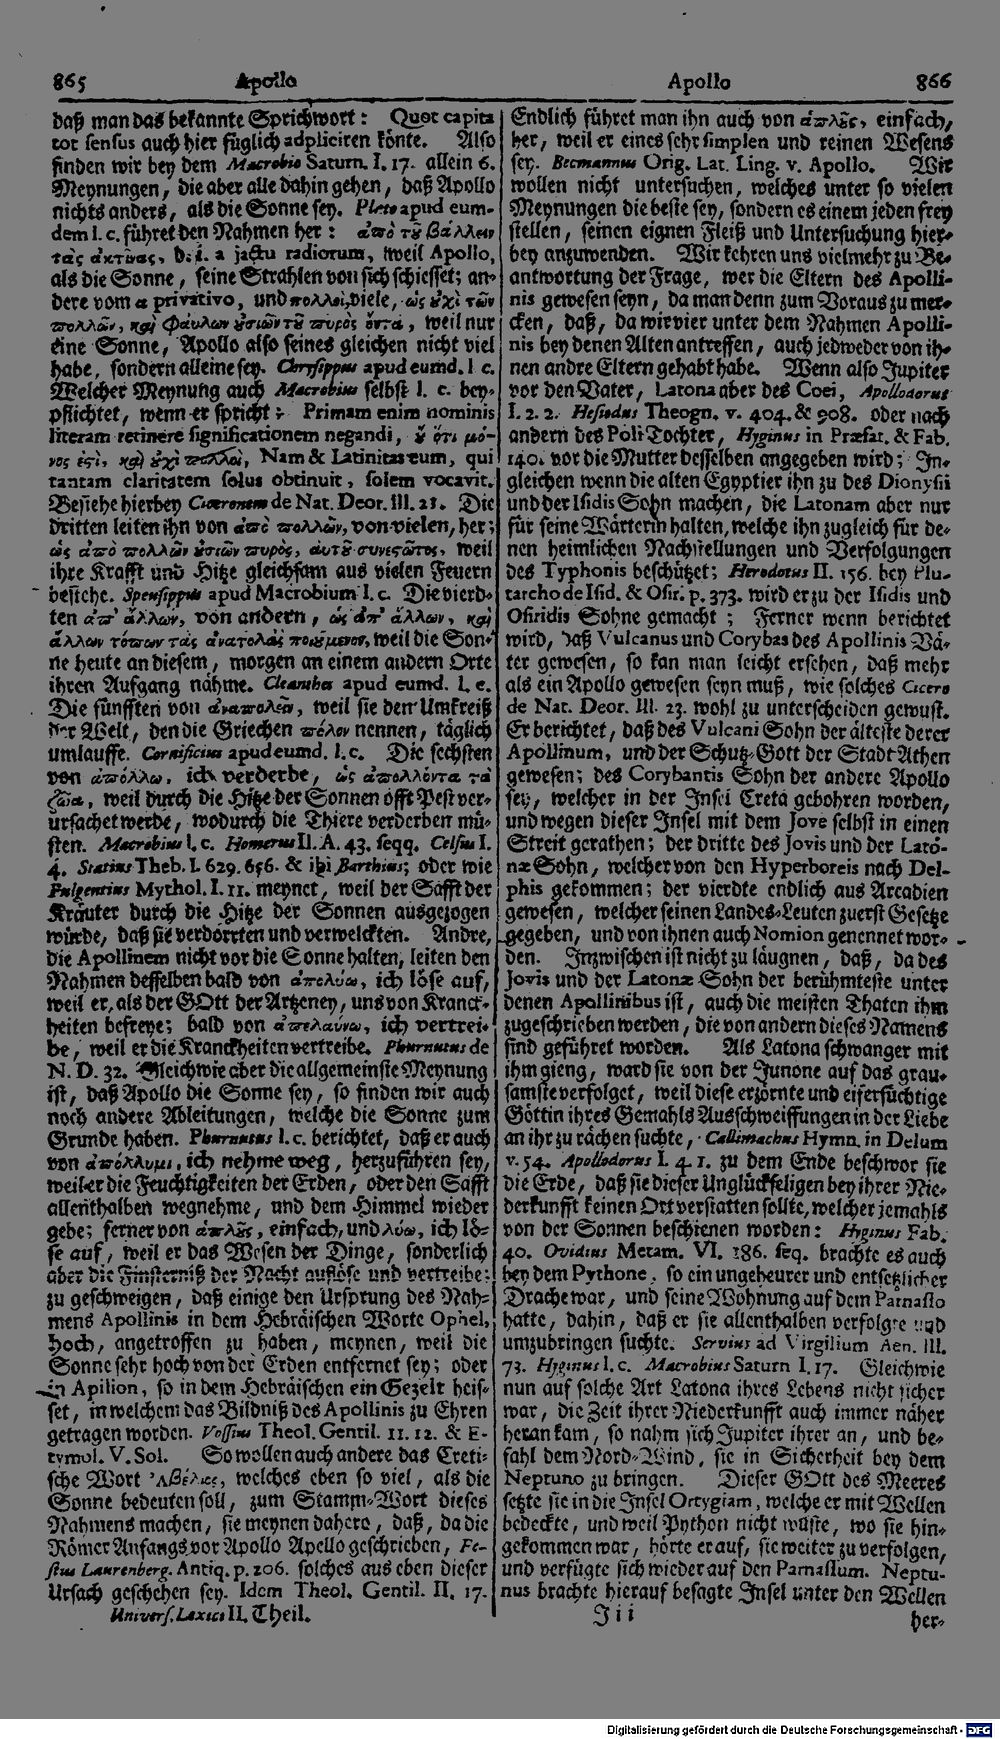 865 Apollo
Apollo 866
daß man das bekannte Sprichwort: Quot capita
tot sensus auch hier füglich adpliciren könte. Also
finden wir bey dem Macrobio Saturn. I. 17. allein 6.
Meynungen, die aber alle dahin gehen, daß Apollo
nichts anders, als die Sonne sey. Plato apud eum-
dem l. c. führet den Nahmen her: ἀπὸ τȣ͂ βάλλειν
τὰς ἀκτῖνας, d. i. a jactu radiorum, weil Apollo,
als die Sonne, seine Strahlen von sich schiesset; an-
dere vom α privativo, und πολλοὶ, viele, ὡς ȣ̓χὶ τῶν
πολλῶν, καὶ φαύλων ȣ̓σιῶν τȣ͂ πυρὸς ὄντα, weil nur
eine Sonne, Apollo also seines gleichen nicht viel
habe, sondern alleine sey. Chrysippus apud eumd. l. c.
Welcher Meynung auch Macrobius selbst l. c. bey-
pflichtet, wenn er spricht: Primam enim nominis
literam retinere significationem negandi, ἢ ὅτι μό-
νος ἐςὶ, καὶ ȣ̓χὶ πολλοὶ, Nam & Latinitas eum, qui
tantam claritatem solus obtinuit, solem vocavit.
Besiehe hierbey Ciceronem de Nat. Deor. III. 21. Die
dritten leiten ihn von ἀπὸ πολλῶν, von vielen, her;
ὡς ἀπὸ πολλῶν ȣ̓σιῶν πυρὸς, αὐτȣ͂ συνεςῶτος, weil
ihre Krafft und Hitze gleichsam aus vielen Feuern
bestehe. Speusippus apud Macrobium l. c. Die vierd-
ten ἀπ' ἄλλων, von andern, ὡς ἀπ' ἄλλων, καὶ
ἄλλων τόπων τὰς ἀνατολὰς ποιȣ́μενον, weil die Son-
ne heute an diesem, morgen an einem andern Orte
ihren Aufgang nähme. Cleanthes apud eumd. l. c.
Die fünfften von ἀναπολεῖν, weil sie den Umkreiß
der Welt, den die Griechen πόλον nennen, täglich
umlauffe. Cornificius apud eumd. l. c. Die sechsten
von ἀπόλλω, ich verderbe, ὡς ἀπολλόντα τὰ
ζῶα, weil durch die Hitze der Sonnen offt Pest ver-
ursachet werde, wodurch die Thiere verderben mü-
sten. Macrobius l. c. Homerus Il. A. 43. seqq. Celsus I.
4. Statius Theb. I. 629. 656. & ibi Barthius; oder wie
Fulgentius Mythol. I. 11. meynet, weil der Safft der
Kräuter durch die Hitze der Sonnen ausgezogen
würde, daß sie verdorrten und verwelckten. Andre,
die Apollinem nicht vor die Sonne halten, leiten den
Nahmen desselben bald von ἀπολύω, ich löse auf,
weil er, als der GOtt der Artzeney, uns von Kranck-
heiten befreye; bald von ἀπελαύνω, ich vertrei-
be, weil er die Kranckheiten vertreibe. Phurnutus de
N. D. 32. Gleichwie aber die allgemeinste Meynung
ist, daß Apollo die Sonne sey, so finden wir auch
noch andere Ableitungen, welche die Sonne zum
Grunde haben. Phurnutus l. c. berichtet, daß er auch
von ἀπόλλυμι, ich nehme weg, herzuführen sey,
weil er die Feuchtigkeiten der Erden, oder den Safft
allenthalben wegnehme, und dem Himmel wieder
gebe; ferner von ἁπλῶς, einfach, und λύω, ich lö-
se auf, weil er das Wesen der Dinge, sonderlich
aber die Finsterniß der Nacht auflöse und vertreibe;
zu geschweigen, daß einige den Ursprung des Nah-
mens Apollinis in dem Hebräischen Worte Ophel,
hoch, angetroffen zu haben, meynen, weil die
Sonne sehr hoch von der Erden entfernet sey; oder
in Apilion, so in dem Hebräischen ein Gezelt heis-
set, in welchem das Bildniß des Apollinis zu Ehren
getragen worden. Vossius Theol. Gentil. II. 12. & E-
tymol. V. Sol. So wollen auch andere das Creti-
sche Wort Ἀβέλιος, welches eben so viel, als die
Sonne bedeuten soll, zum Stamm-Wort dieses
Nahmens machen, sie meynen dahero, daß, da die
Römer Anfangs vor Apollo Apello geschrieben, Fe-
stus Laurenberg. Antiq. p. 206. solches aus eben dieser
Ursach geschehen sey. Idem Theol. Gentil. II. 17.
Univers. Lexici II. Theil.
Endlich führet man ihn auch von ἁπλῶς, einfach,
her, weil er eines sehr simplen und reinen Wesens
sey. Becmannus Orig. Lat. Ling. v. Apollo. Wir
wollen nicht untersuchen, welches unter so vielen
Meynungen die beste sey, sondern es einem jeden frey
stellen, seinen eignen Fleiß und Untersuchung hier-
bey anzuwenden. Wir kehren uns vielmehr zu Be-
antwortung der Frage, wer die Eltern des Apolli-
nis gewesen seyn, da man denn zum Voraus zu mer-
cken, daß, da wir vier unter dem Nahmen Apolli-
nis bey denen Alten antreffen, auch jedweder von ih-
nen andre Eltern gehabt habe. Wenn also Jupiter
vor den Vater, Latona aber des Coei, Apollodorus
I. 2. 2. Hesiodus Theogn. v. 404. & 908. oder nach
andern des Poli Tochter, Hyginus in Præfat. & Fab.
140. vor die Mutter desselben angegeben wird; In-
gleichen wenn die alten Egyptier ihn zu des Dionysii
und der Isidis Sohn machen, die Latonam aber nur
für seine Wärterin halten, welche ihn zugleich für de-
nen heimlichen Nachstellungen und Verfolgungen
des Typhonis beschützet; Herodotus II. 156. bey Plu-
tarcho de Isid. & Osir. p. 373. wird er zu der Isidis und
Osiridis Sohne gemacht; Ferner wenn berichtet
wird, daß Vulcanus und Corybas des Apollinis Vä-
ter gewesen, so kan man leicht ersehen, daß mehr
als ein Apollo gewesen seyn muß, wie solches Cicero
de Nat. Deor. III. 23. wohl zu unterscheiden gewust.
Er berichtet, daß des Vulcani Sohn der älteste derer
Apollinum, und der Schutz-Gott der Stadt Athen
gewesen; des Corybantis Sohn der andere Apollo
sey, welcher in der Insel Creta gebohren worden,
und wegen dieser Insel mit dem Jove selbst in einen
Streit gerathen; der dritte des Jovis und der Lato-
næ Sohn, welcher von den Hyperboreis nach Del-
phis gekommen; der vierdte endlich aus Arcadien
gewesen, welcher seinen Landes-Leuten zuerst Gesetze
gegeben, und von ihnen auch Nomion genennet wor-
den. Inzwischen ist nicht zu läugnen, daß, da des
Jovis und der Latonæ Sohn der berühmteste unter
denen Apollinibus ist, auch die meisten Thaten ihm
zugeschrieben werden, die von andern dieses Namens
sind geführet worden. Als Latona schwanger mit
ihm gieng, ward sie von der Junone auf das grau-
samste verfolget, weil diese erzörnte und eifersüchtige
Göttin ihres Gemahls Ausschweiffungen in der Liebe
an ihr zu rächen suchte, Callimachus Hymn. in Delum
v. 54. Apollodorus I. 4. 1. zu dem Ende beschwor sie
die Erde, daß sie dieser Unglückseligen bey ihrer Nie-
derkunfft keinen Ort verstatten sollte, welcher jemahls
von der Sonnen beschienen worden: Hyginus Fab.
40. Ovidius Metam. VI. 186. seq. brachte es auch
bey dem Pythone, so ein ungeheurer und entsetzlicher
Drache war, und seine Wohnung auf dem Parnasso
hatte, dahin, daß er sie allenthalben verfolgte und
umzubringen suchte. Servius ad Virgilium Aen. III.
73. Hyginus l. c. Macrobius Saturn I. 17. Gleichwie
nun auf solche Art Latona ihres Lebens nicht sicher
war, die Zeit ihrer Niederkunfft auch immer näher
heran kam, so nahm sich Jupiter ihrer an, und be-
fahl dem Nord-Wind, sie in Sicherheit bey dem
Neptuno zu bringen. Dieser GOtt des Meeres
setzte sie in die Insel Ortygiam, welche er mit Wellen
bedeckte, und weil Python nicht wuste, wo sie hin-
gekommen war, hörte er auf, sie weiter zu verfolgen,
und verfügte sich wieder auf den Parnassum. Neptu-
nus brachte hierauf besagte Insel unter den Wellen
Jii
her-
Digitalisierung gefördert durch die Deutsche Forschungsgemeinschaft - DFG